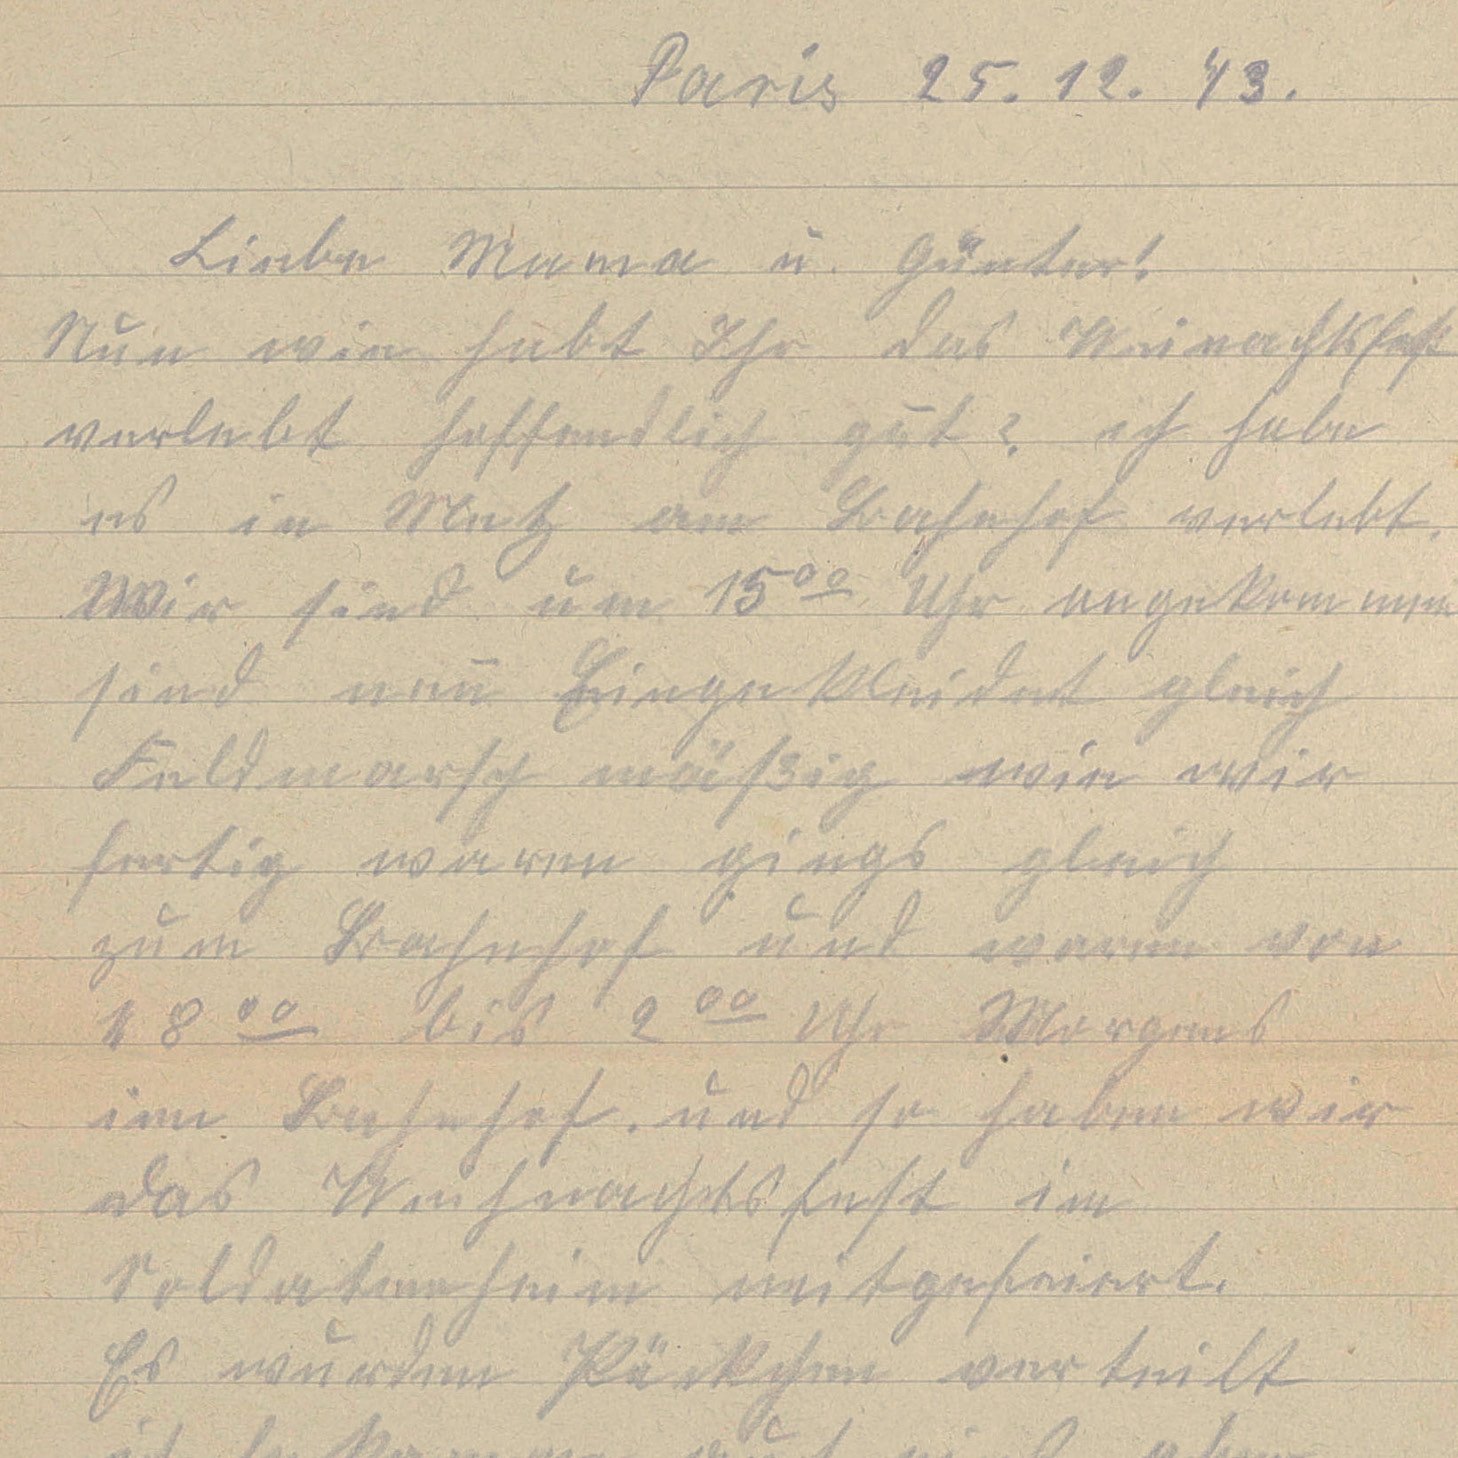 Paris 25. 12. 43.
Liebe Mama u. Günter!
Nun wie habt Ihr das Weinachtsfest
verlebt hoffendlich gut? ich habe
es in Metz am Bahnhof verlebt.
Wir sind um 15⁰⁰ Uhr angekommen
sind neu Eingekleidet gleich
Feldmarsch mäßig wie wir
fertig waren gings gleich
zum Bahnhof und waren von
18⁰⁰ bis 2⁰⁰ Uhr Morgens
im Bahnhof. und so haben wir
das Weihnachtsfest im
Soldatenheim mitgefeiert.
Es wurden Päckchen verteilt